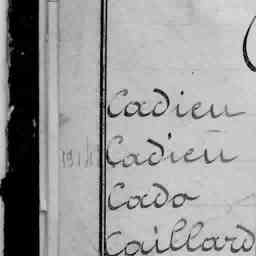 Cadieu
Cadieu
Cado
Caillard